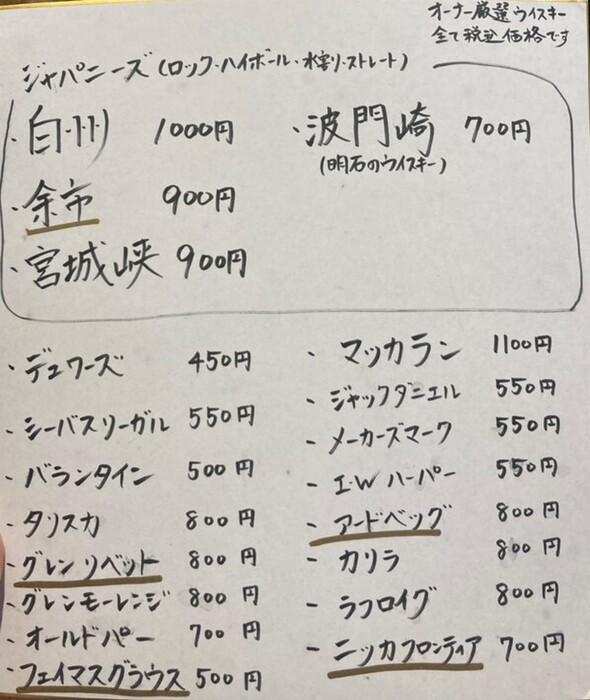 オーナー厳選ウイスキー
全て税込価格です
ジャパニーズ(ロック・ハイボール・水割り・ストレート)
・白州 1000円
・波門崎 700円
(明石のウイスキー)
・余市 900円
・宮城峡 900円
・デュワーズ 450円
・シーバスリーガル 550円
・バランタイン 500円
・タリスカ 800円
・グレンリベット 800円
・グレンモーレンジ 800円
・オールドパー 700円
・フェイマスグラウス 500円
・マッカラン 1100円
・ジャックダニエル 550円
・メーカーズマーク 550円
・I.Wハーパー 550円
・アードベッグ 800円
・カリラ 800円
・ラフロイグ 800円
・ニッカフロンティア 700円